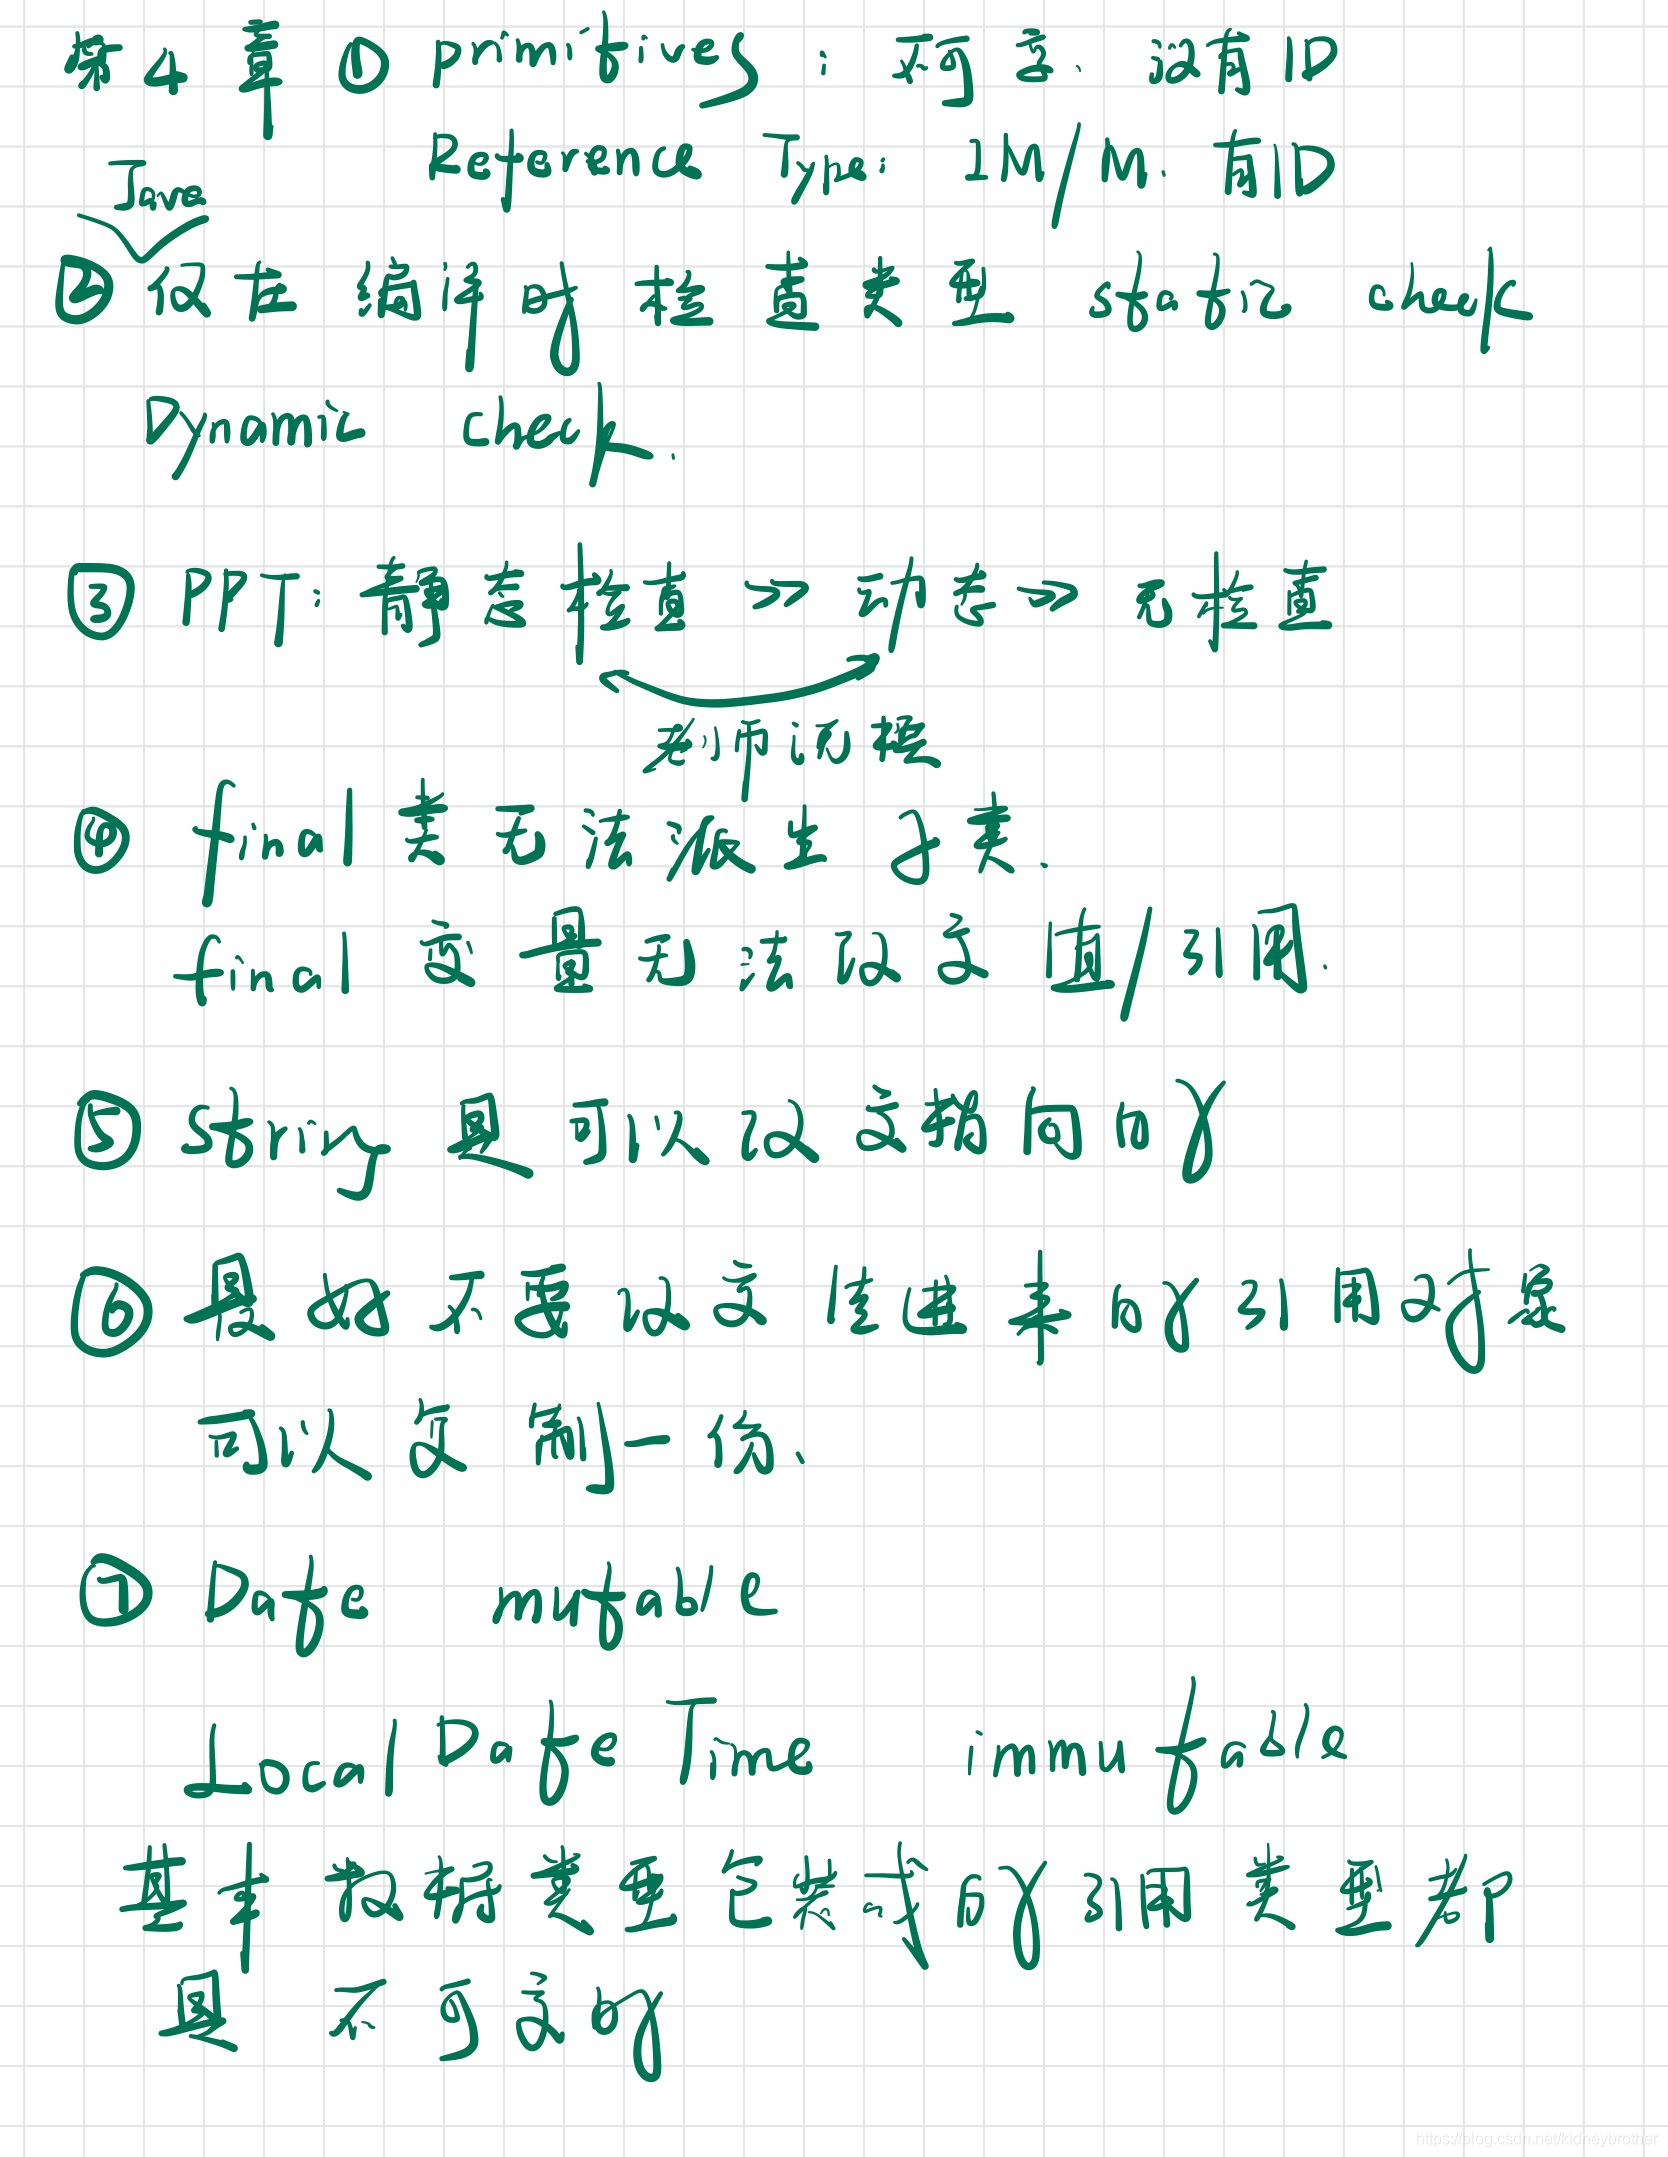 第4章 ① primitives：不可变、没有ID
Reference Type: IM/M. 有ID
Java
② 仅在编译时检查类型 static check
Dynamic check.
③ PPT: 静态检查 >> 动态 >> 无检查
老师说搜
④ final 类无法派生子类.
final 变量无法改变值/引用.
⑤ String 是可以改变指向的
⑥ 最好不要改变传进来的引用对象
可以复制一份、
⑦ Date mutable
Local Date Time immutable
基本数据类型包装成的引用类型都
是不可变的
https://blog.csdn.net/kidneybrother